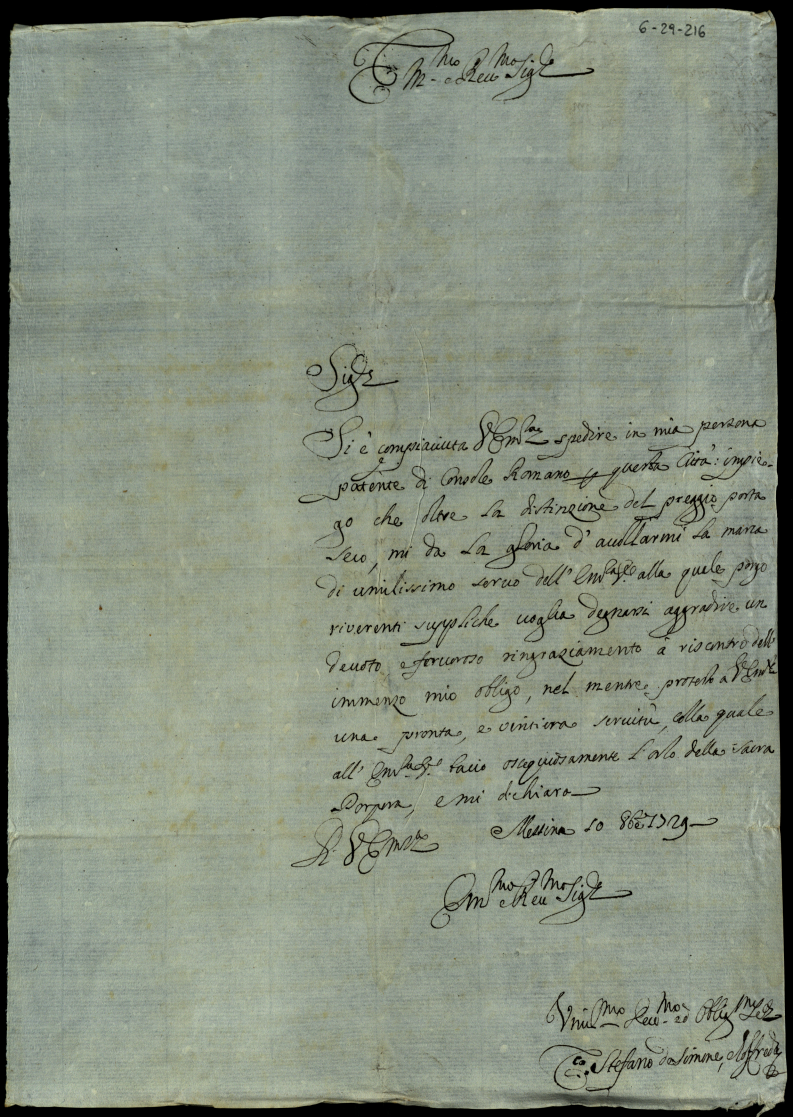 6-29-216
Em.mo e Reu.mo Sig.re
Sig.re
Si è compiaciuta V. Em.za spedire in mia persona
patente di Console Romano p questa Città: impie-
go che oltre la distinzione del preggio porta
seco, mi da la gloria d'auollarmi la marca
di umilissimo seruo dell' Em.za V. alla quale porgo
riuerenti suppliche uoglia degnarsi aggradire un
deuoto e feruoroso ringraziamento à riscontro dell'
immenzo mio obligo, nel mentre protesto a V. Em.za
una pronta, e vintiera seruitù, colla quale
all' Em.za V. bacio ossequiosamente l'orlo della Sacra
Porpora, e mi dichiaro
Di V. Em.za Messina 10 8bre 1729
Em.mo e Reu.mo Sig.re
Vmil.mo Deu.mo ed Oblig.mo Ser.re
Stefano de Simone,